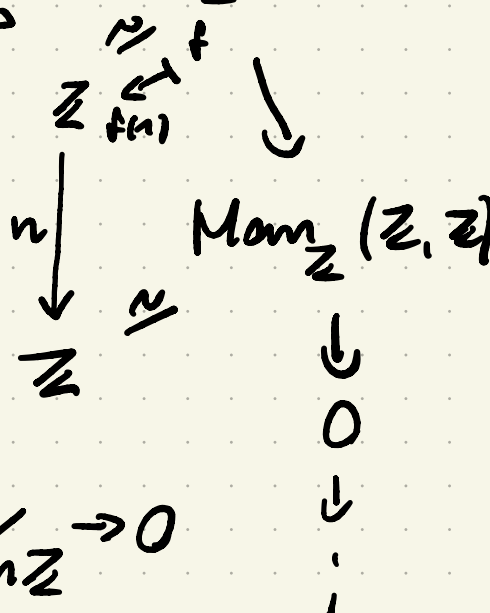 ≅ f
ℤ f(1)
n Hom_ℤ (ℤ, ℤ)
≅
ℤ
0
nℤ → 0